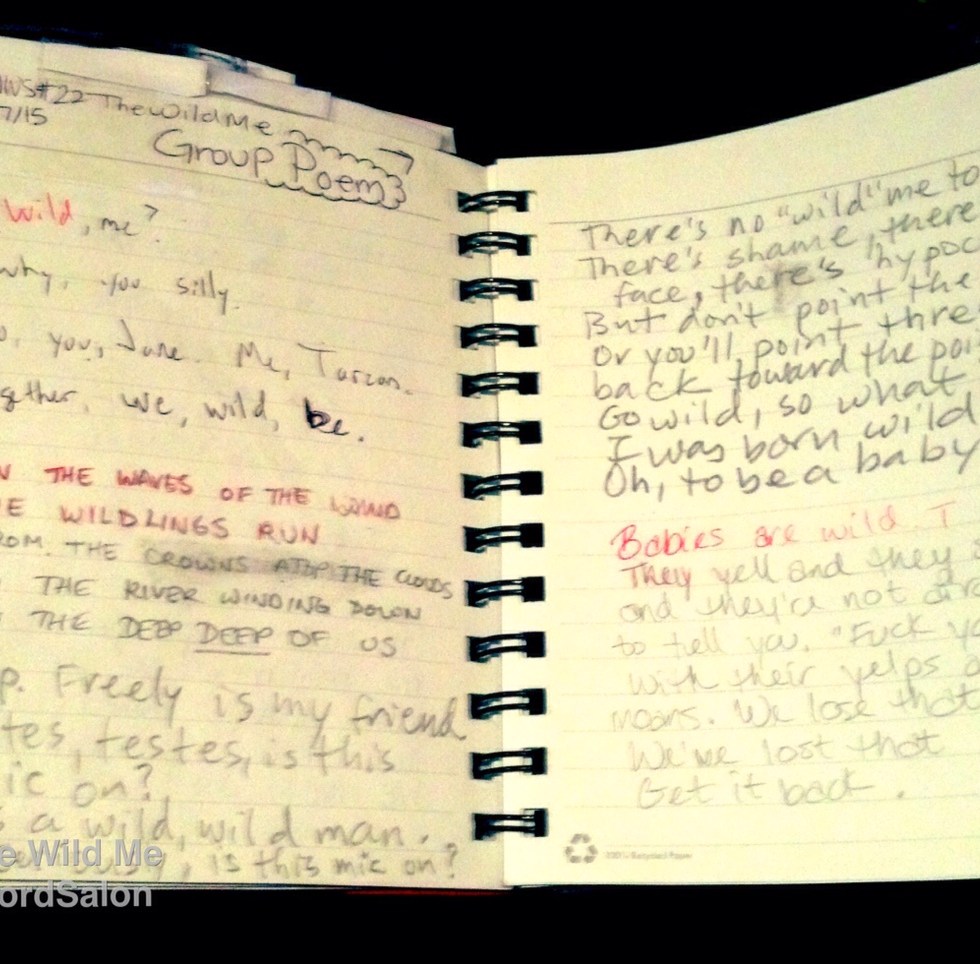 WS#22 The Wild Me
7/15
Group Poem
Wild, me?
why, you silly.
you, Jane. Me, Tarzan.
gether, we, wild, be.
THE WAVES OF THE WIND
E WILDLINGS RUN
ROM THE CROWNS ATOP THE CLOUDS
THE RIVER WINDING DOWN
THE DEEP DEEP OF US
p. Freely is my friend
tes, testes, is this
ic on?
s a wild, wild man.
, is this mic on?
There's no "wild" me to
There's shame, there
face, there's hypoc
But don't point the
Or you'll point thre
back toward the poi
Go wild, so what
I was born wild
Oh, to be a baby
Babies are wild I
They yell and they
and they're not afr
to tell you, "Fuck yo
with their yelps a
moans. We lose that
We've lost that
Get it back.
100% Recycled Paper
e Wild Me
ordSalon